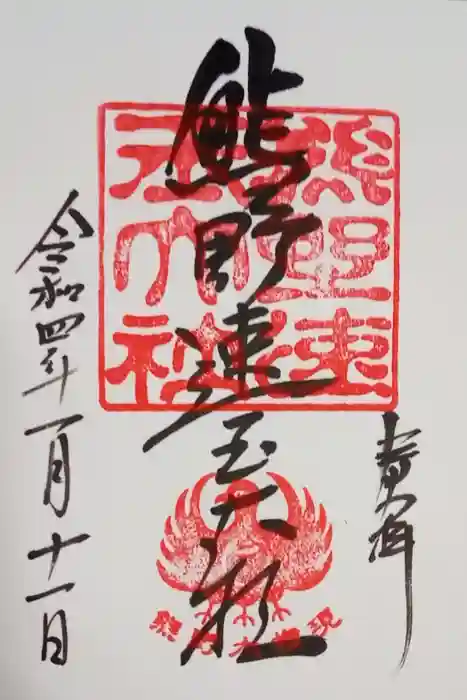 奉拝
熊野速玉大社
令和四年一月十一日
熊野速
玉大社
熊野大権現